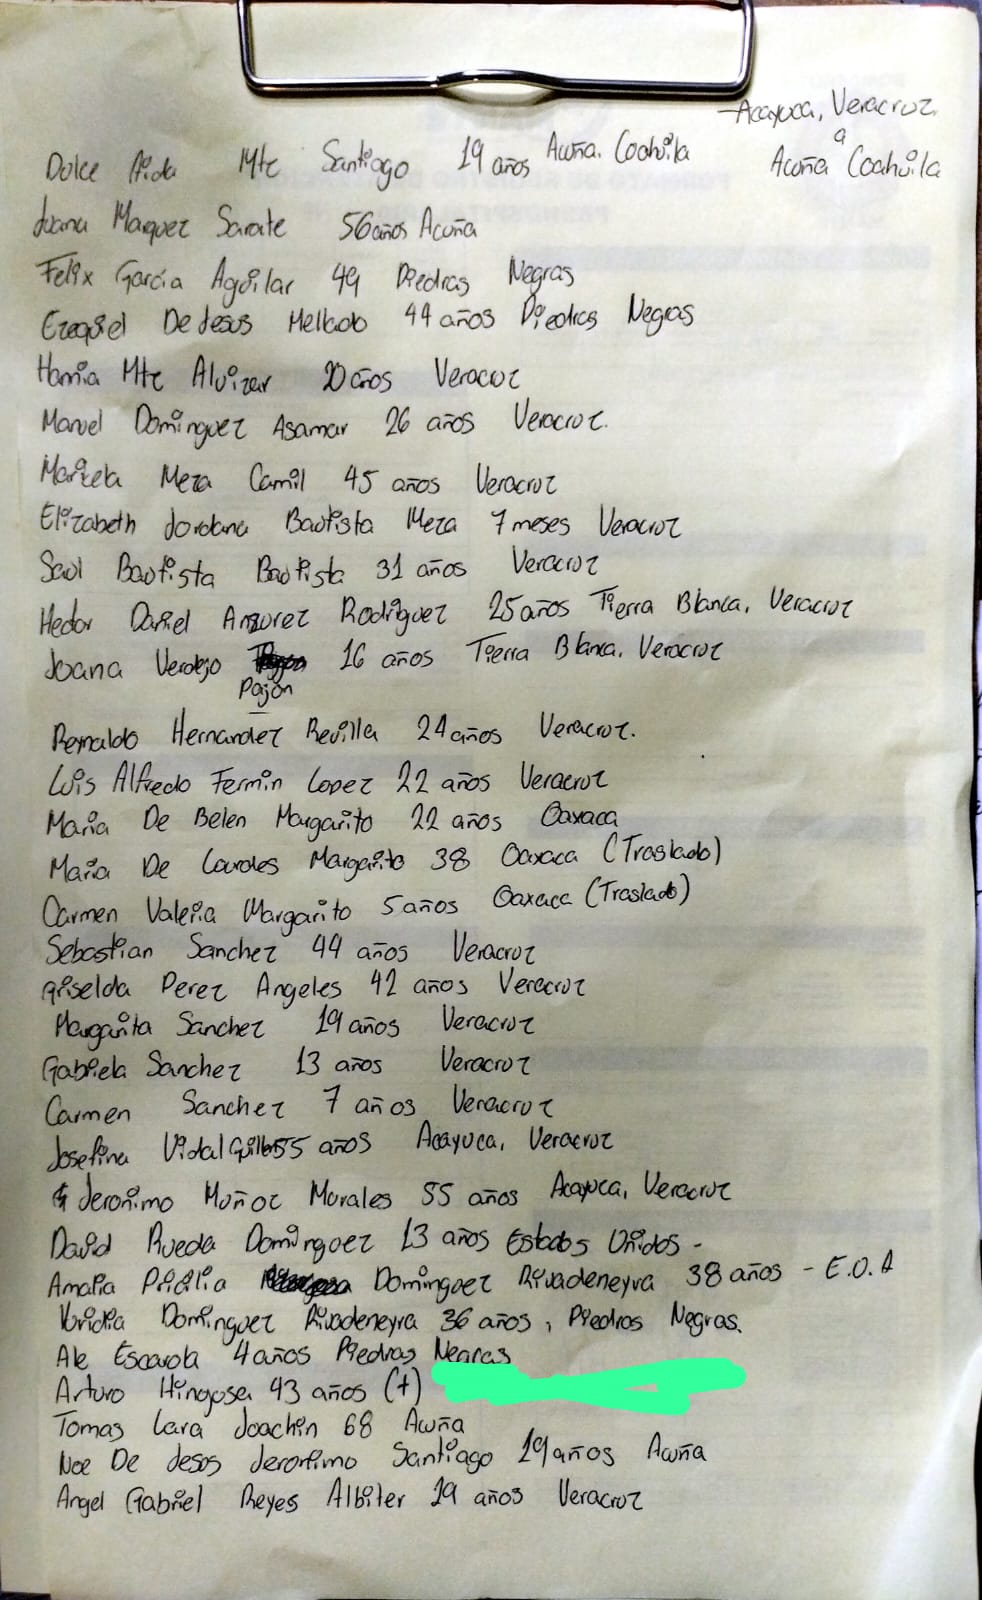 Acayuca, Veracruz.
a
Acuña Coahuila
Dulce Aida Mtz Santiago 19 años Acuña. Coahuila
Juana Marquez Sarate 56 años Acuña
Felix Garcia Aguilar 49 Piedras Negras
Ezequiel De Jesus Mellado 44 años Piedras Negras
Hamia Mtz Alvizar 20 años Veracruz
Manuel Dominguez Asamar 26 años Veracruz.
Maricela Meza Camil 45 años Veracruz
Elizabeth Jordana Bautista Meza 7 meses Veracruz
Saul Bautista Bautista 31 años Veracruz
Hector Daniel Anzurez Rodriguez 25 años Tierra Blanca, Veracruz
Joana Verdejo 16 años Tierra Blanca, Veracruz
Pajon
Reynaldo Hernandez Revilla 24 años Veracruz.
Luis Alfredo Fermin Lopez 22 años Veracruz
Maria De Belen Margarito 22 años Oaxaca
Maria De Lourdes Margarito 38 Oaxaca (Traslado)
Carmen Valeria Margarito 5 años Oaxaca (Traslado)
Sebastian Sanchez 44 años Veracruz
Griselda Perez Angeles 42 años Veracruz
Margarita Sanchez 19 años Veracruz
Gabriela Sanchez 13 años Veracruz
Carmen Sanchez 7 años Veracruz
Josefina Vidal 55 años Acayuca, Veracruz
Jeronimo Muñoz Morales 55 años Acayuca, Veracruz
David Rueda Dominguez 13 años Estados Unidos -
Amalia Dominguez Rivadeneyra 38 años - E.U.A
Viridia Dominguez Rivadeneyra 36 años, Piedras Negras.
Ale Escarola 4 años Piedras Negras
Arturo Hinojosa 43 años (+)
Tomas Lara Joachin 68 Acuña
Noe De Jesus Jeronimo Santiago 19 años Acuña
Angel Gabriel Reyes Albiter 29 años Veracruz